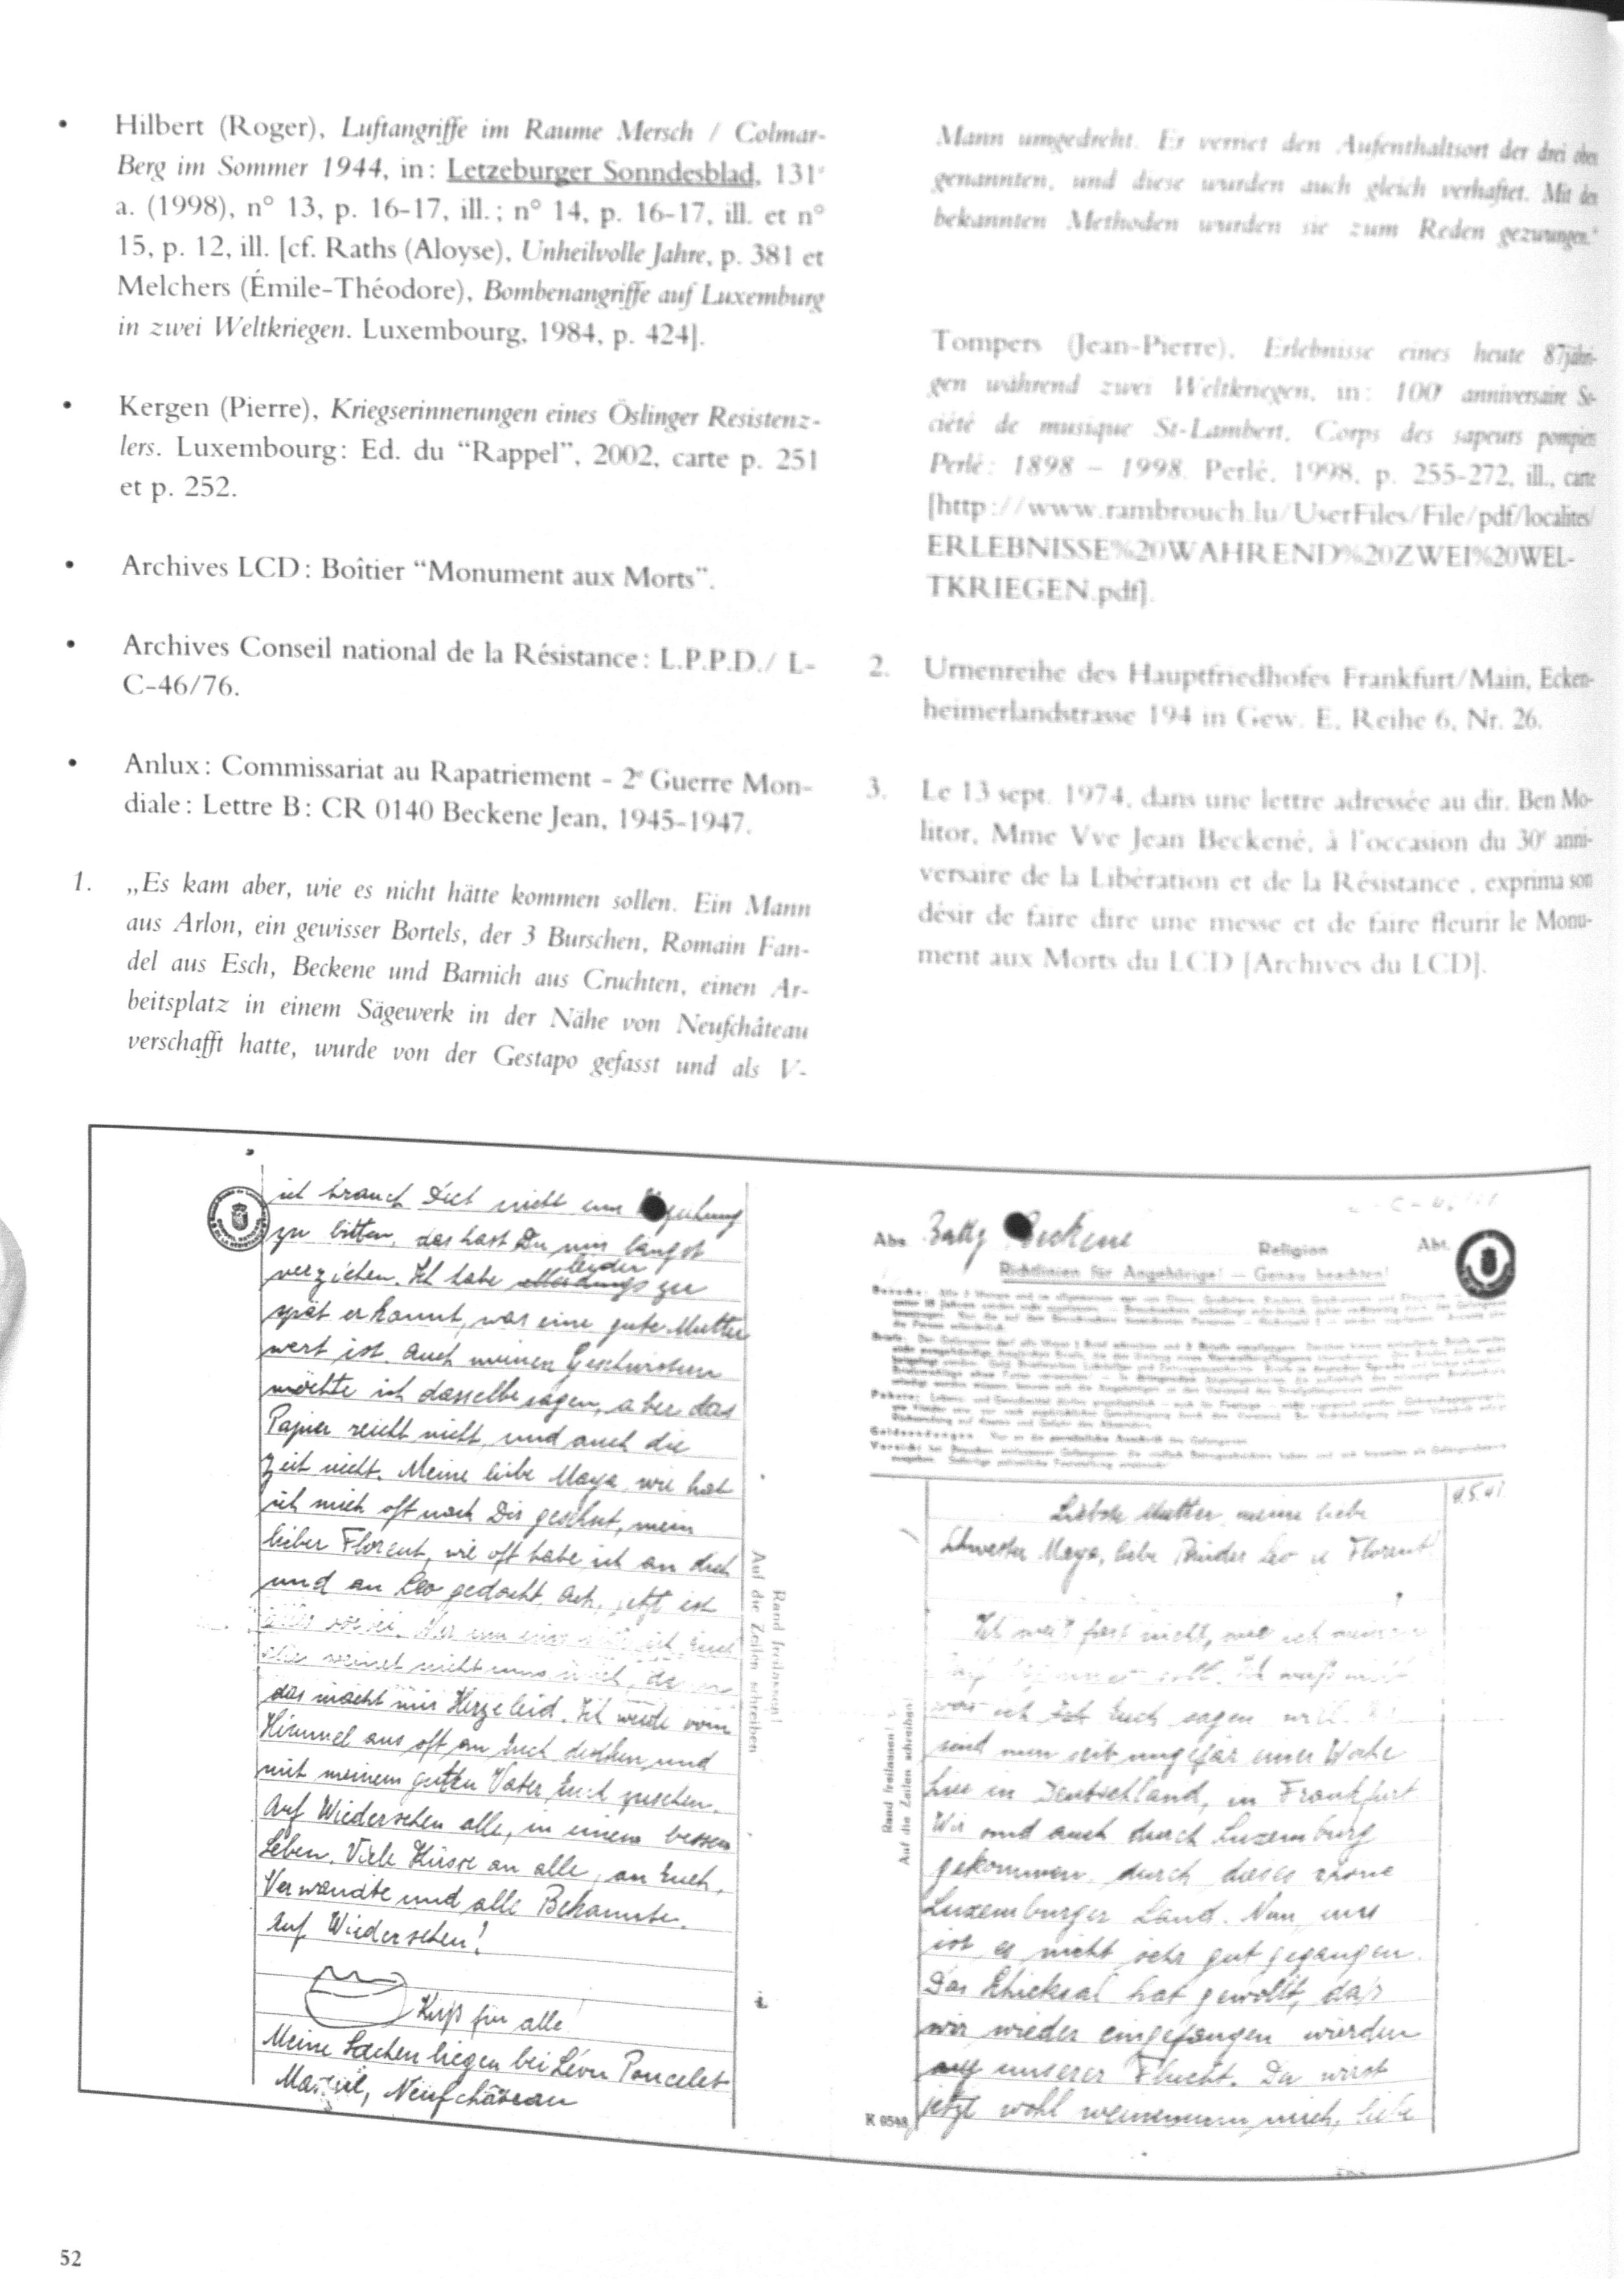 • Hilbert (Roger), Luftangriffe im Raume Mersch / Colmar-
Berg im Sommer 1944, in: Letzeburger Sonndesblad, 131e
a. (1998), n° 13, p. 16-17, ill.; n° 14, p. 16-17, ill. et n°
15, p. 12, ill. [cf. Raths (Aloyse), Unheilvolle Jahre, p. 381 et
Melchers (Émile-Théodore), Bombenangriffe auf Luxemburg
in zwei Weltkriegen. Luxembourg, 1984, p. 424].
• Kergen (Pierre), Kriegserinnerungen eines Öslinger Resistenz-
lers. Luxembourg: Ed. du “Rappel”, 2002, carte p. 251
et p. 252.
• Archives LCD: Boîtier “Monument aux Morts”.
• Archives Conseil national de la Résistance: L.P.P.D./ L-
C-46/76.
• Anlux: Commissariat au Rapatriement - 2e Guerre Mon-
diale: Lettre B: CR 0140 Beckene Jean, 1945-1947.
1. „Es kam aber, wie es nicht hätte kommen sollen. Ein Mann
aus Arlon, ein gewisser Bortels, der 3 Burschen, Romain Fan-
del aus Esch, Beckene und Barnich aus Cruchten, einen Ar-
beitsplatz in einem Sägewerk in der Nähe von Neufchâteau
verschafft hatte, wurde von der Gestapo gefasst und als V-
Mann umgedreht. Er verriet den Aufenthaltsort der drei oben
genannten, und diese wurden auch gleich verhaftet. Mit den
bekannten Methoden wurden sie zum Reden gezwungen.“
Tompers (Jean-Pierre), Erlebnisse eines heute 87jähri-
gen während zwei Weltkriegen, in: 100e anniversaire So-
ciété de musique St-Lambert, Corps des sapeurs pompiers
Perlé: 1898 – 1998. Perlé, 1998, p. 255-272, ill., carte
[http://www.rambrouch.lu/UserFiles/File/pdf/localites/
ERLEBNISSE%20WAHREND%20ZWEI%20WEL-
TKRIEGEN.pdf].
2. Urnenreihe des Hauptfriedhofes Frankfurt/Main, Ecken-
heimerlandstrasse 194 in Gew. E, Reihe 6, Nr. 26.
3. Le 13 sept. 1974, dans une lettre adressée au dir. Ben Mo-
litor, Mme Vve Jean Beckené, à l'occasion du 30e anni-
versaire de la Libération et de la Résistance , exprima son
désir de faire dire une messe et de faire fleurir le Monu-
ment aux Morts du LCD [Archives du LCD].
ich brauch Dich nicht um
zu bitten, das hast Du mir längst
leider
verziehen. Ich habe allerdings zu
spät erkannt, was eine gute Mutter
wert ist. Auch meinen Geschwistern
möchte ich dasselbe sagen, aber das
Papier reicht nicht, und auch die
Zeit nicht. Meine liebe Maya, wie hab
ich mich oft nach Dir gesehnt, mein
lieber Florent, wie oft habe ich an dich
und an Leo gedacht. Ach, jetzt ist
weinet nicht
das macht mir Herzeleid. Ich werde vom
Himmel aus oft an Euch denken, und
mit meinem guten Vater Euch zusehen.
Auf Wiedersehen alle, in einem bessern
Leben. Viele Küsse an alle, an Euch,
Verwandte und alle Bekannte.
Auf Wiedersehen!
Kuß für alle!
Meine Sachen liegen bei Léon Poncelet
Neufchâteau
Rand freilassen!
Auf die Zeilen schreiben
Abs. Batty Beckene
Religion
Abt.
Richtlinien für Angehörige! — Genau beachten!
Liebste Mutter, meine liebe
Schwester Maya, liebe Brüder Leo u Florent!
Ich weiß fast nicht, wie ich
soll. Ich weiß nicht
was ich Euch sagen will.
sind nun seit ungefär einer Woche
hier in Deutschland, in Frankfurt.
Wir sind auch durch Luxemburg
gekommen, durch dieses schöne
Luxemburger Land. Nun, uns
ist es nicht sehr gut gegangen.
Das Schicksal hat gewollt, daß
wir wieder eingefangen wurden
auf unserer Flucht. Du wirst
jetzt wohl weinen um mich, liebe
Rand freilassen!
Auf die Zeilen schreiben!
K 0548
52